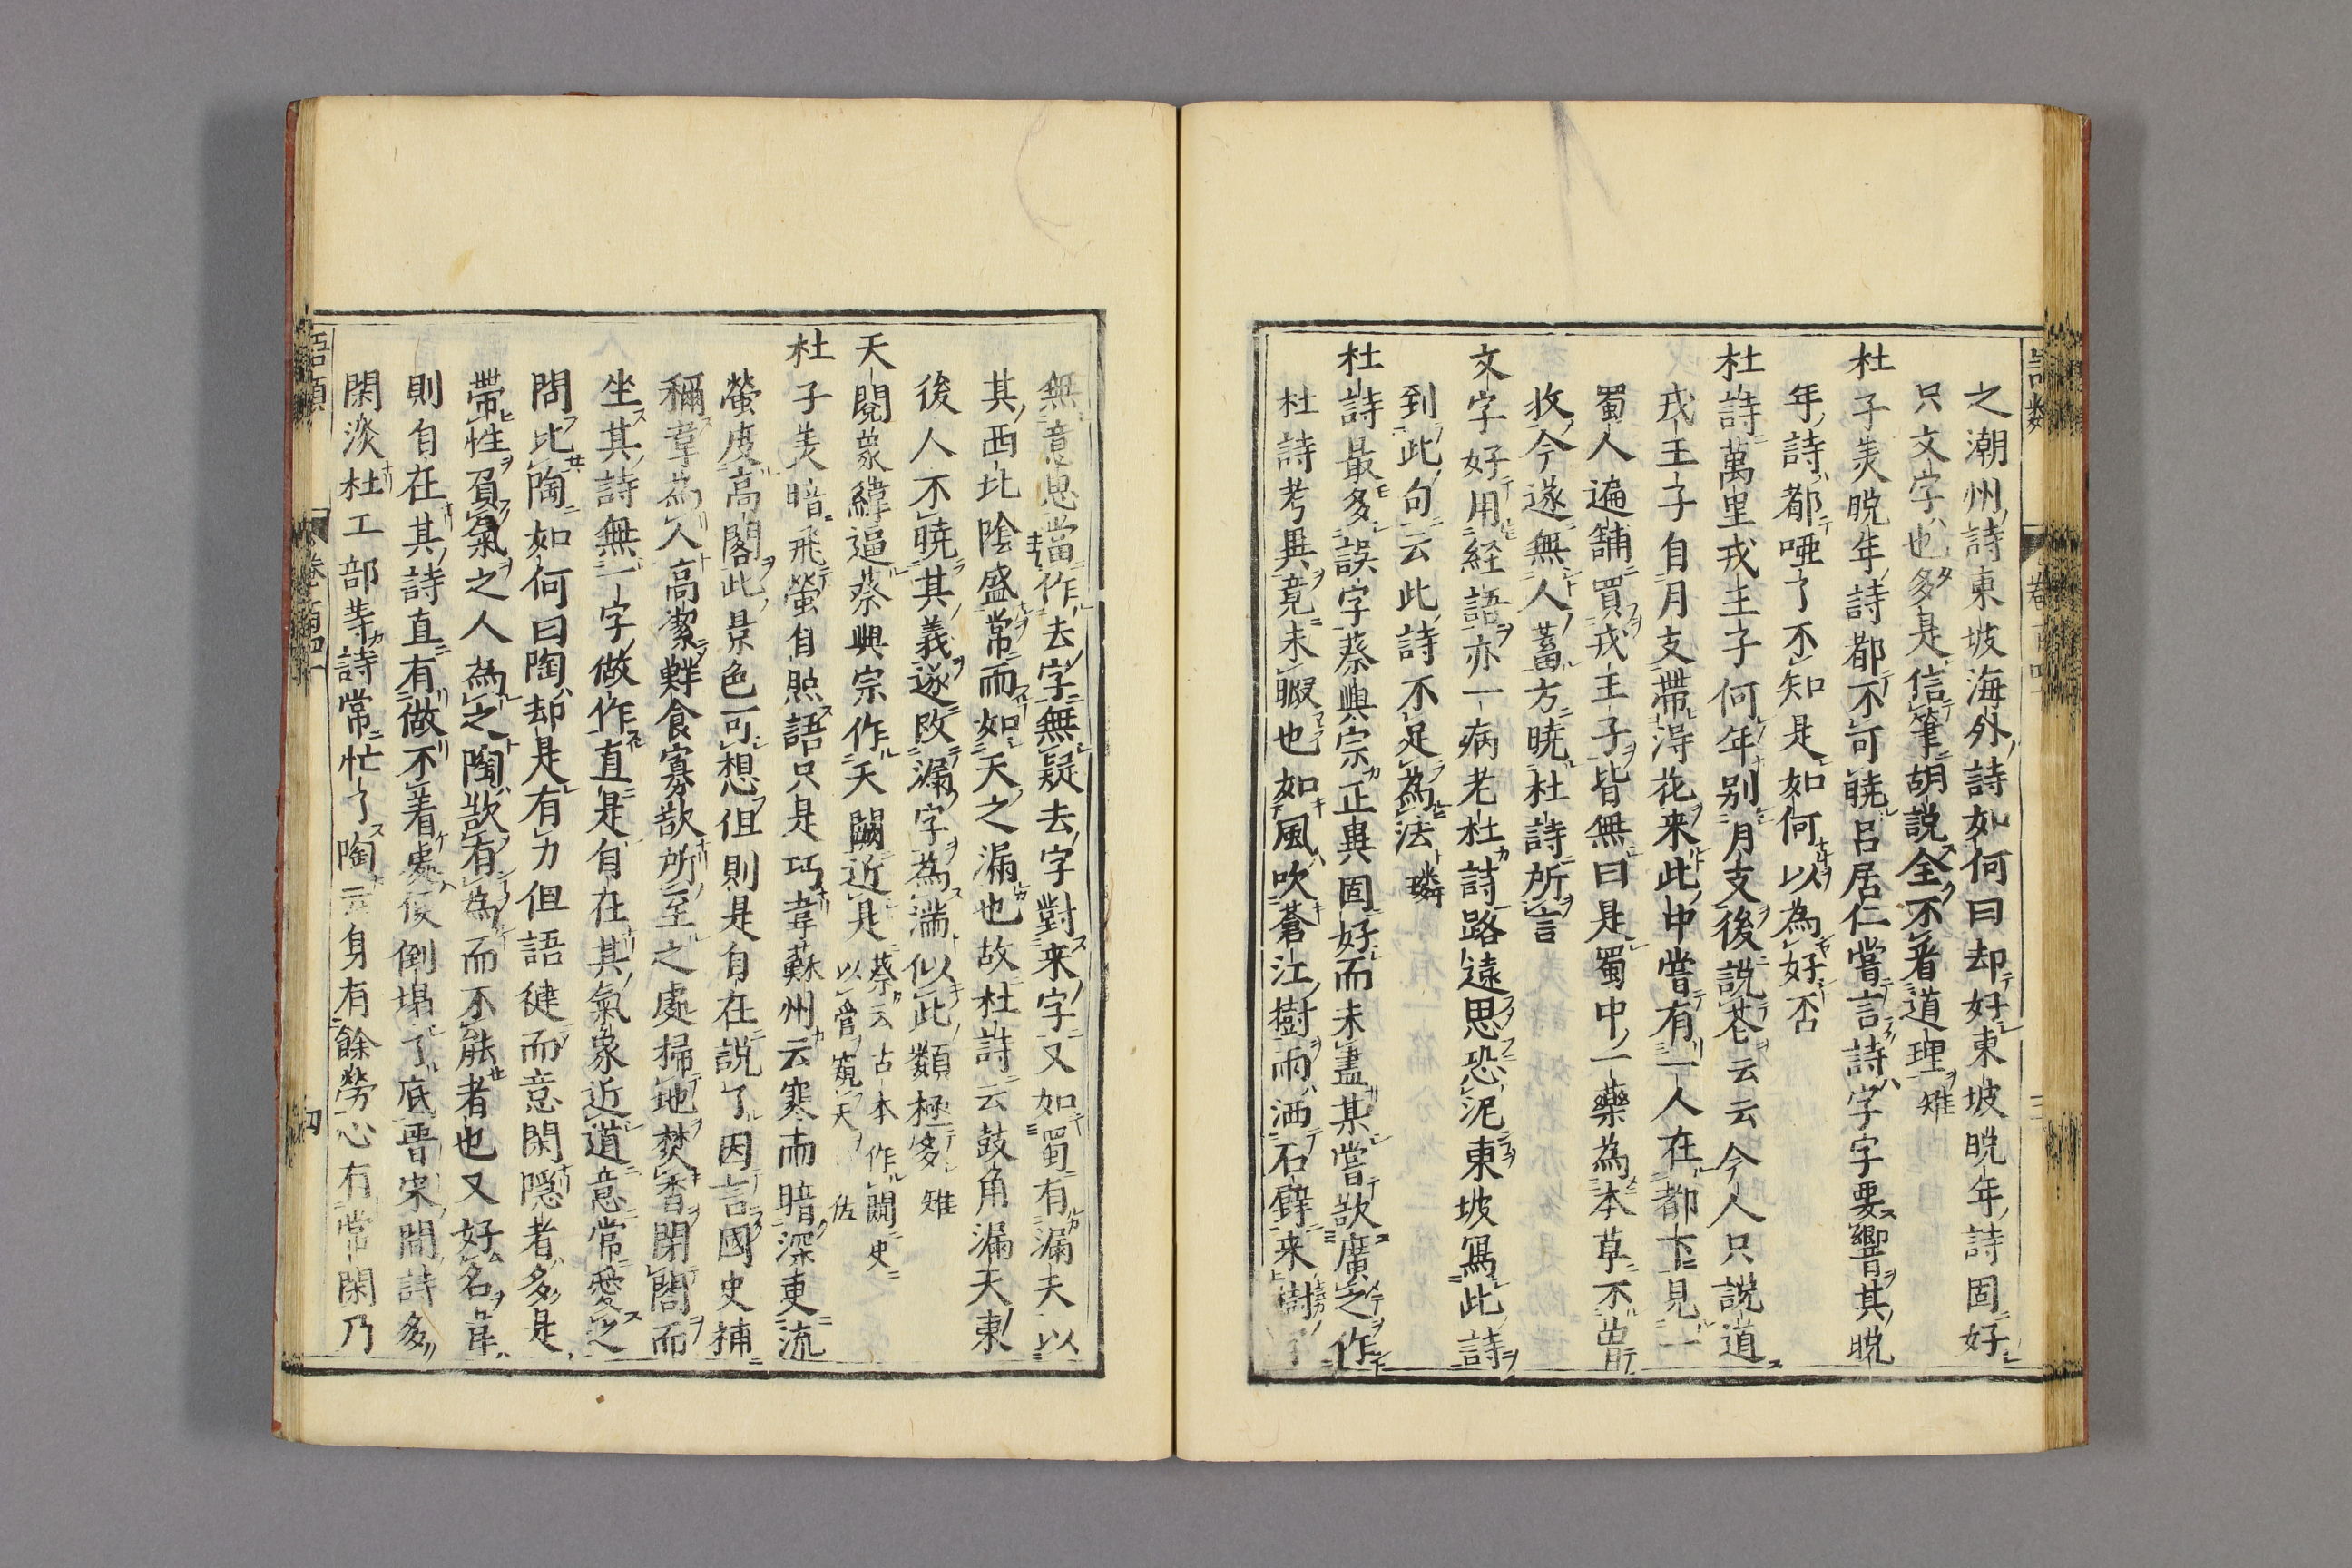 之潮州詩東坡海外詩如何曰却好東坡晩年詩固好
只文字也多是信筆胡説全不着道理 雉
杜子羙晩年詩都不可暁吕居仁嘗言詩字字要響其晩
年詩都啞了不知是如何以為好否
杜詩萬里戎王子何年别月支後説花云云今人只説道
戎王子自月支帶淂花来此中嘗有一人在都下見一
蜀人遍舗買戎王子皆無曰是蜀中一藥為本草不曽
收今遂無人蓄方暁杜詩所言
文字好用経語亦一病老杜詩路遠思恐泥東坡冩此詩
到此句云此詩不足為法 璘
杜詩最多誤字蔡興宗正異固好而未盡某嘗欲廣之作
杜詩考異竟未暇也如風吹蒼江樹雨洒石壁来樹字
無意思當作去字無疑去字對来字又如蜀有漏天以
其西北陰盛常而如天之漏也故杜詩云鼓角漏天東
後人不暁其義遂改漏字為満似此類極多 雉
天閲象緯逼蔡興宗作天闚近是 蔡云古本作闚史以管窺天 佐
杜子羙暗飛螢自照語只是巧韋蘇州云寒雨暗深更流
螢度髙閣此景色可想但則是自在説了因言國史補
稱韋為人高潔鮮食寡欲所至之處掃地焚香閉閤而
坐其詩無一字做作直是自在其氣象近道意常愛之
問比陶如何曰陶却是有力但語健而意閑隠者多是
帶性負氣之人為之陶欲有為而不能者也又好名韋
則自在其詩直有做不着處便倒塌了底晋宋間詩多
閑淡杜工部等詩常忙了陶云身有餘勞心有常閑乃
語類 卷百四十 四
語類 卷百四十